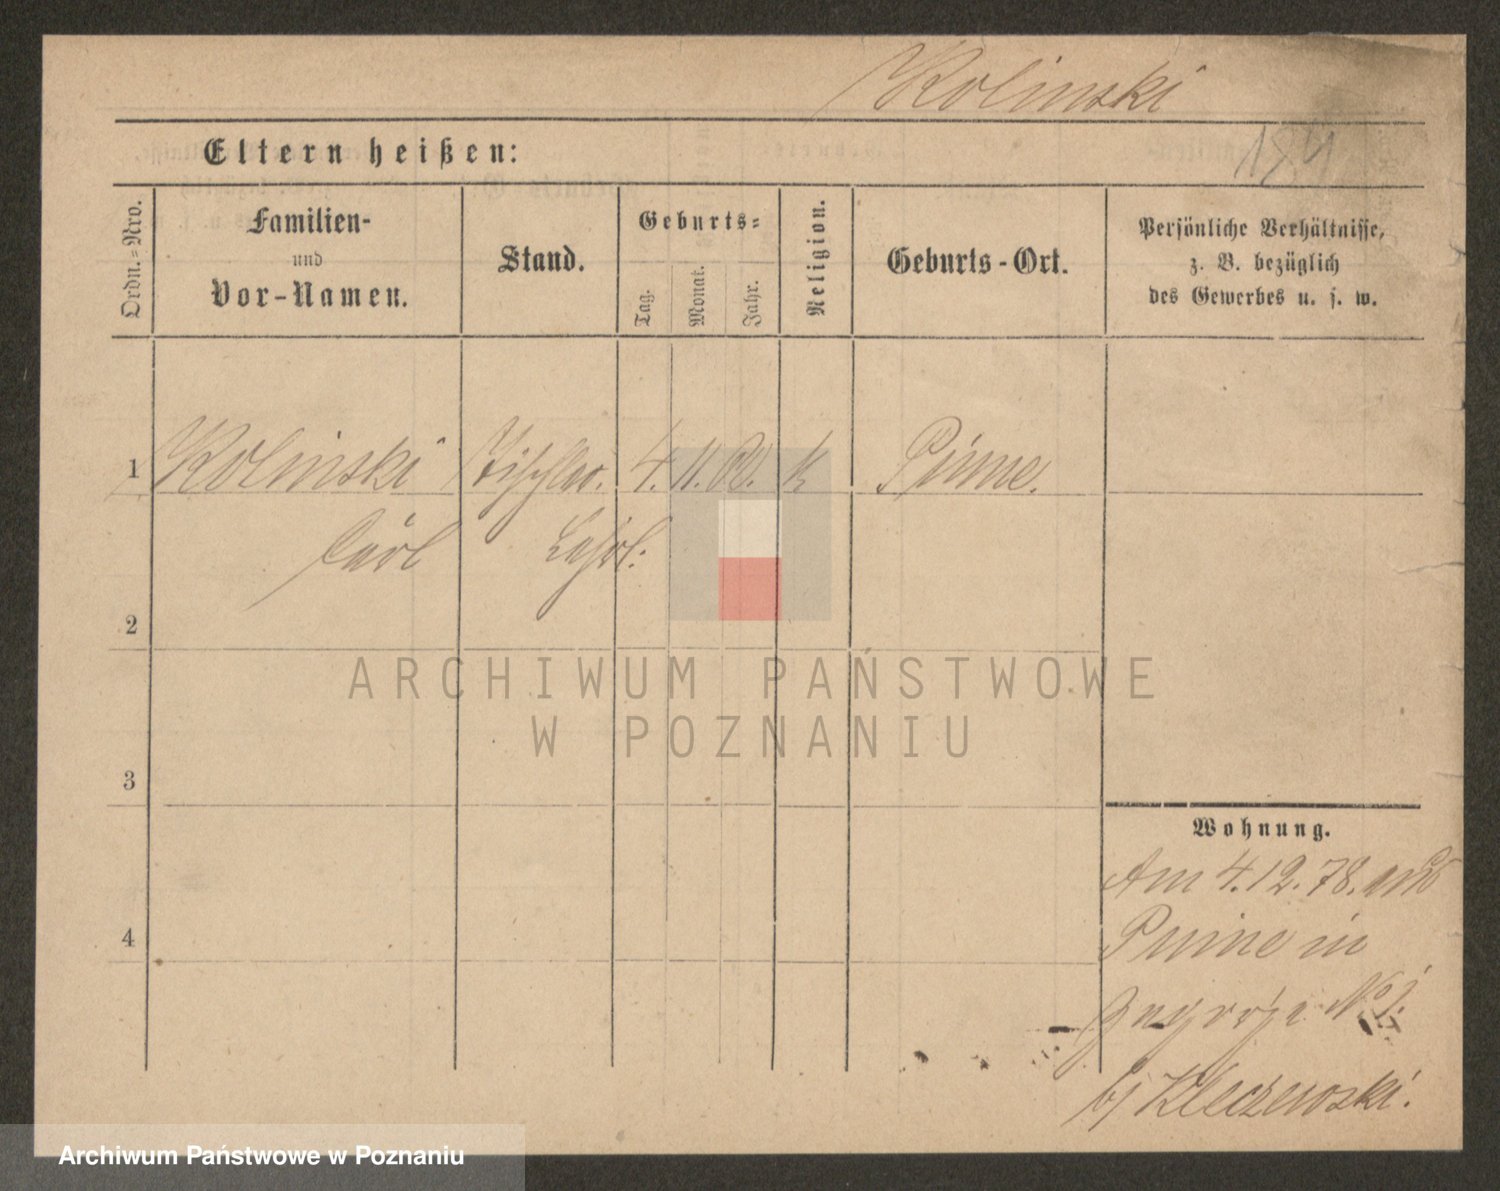 Kolinski
Eltern heißen:
Ordn.=Nro.
Familien-
und
Vor-Namen.
Stand.
Geburts=
Tag.
Monat.
Jahr.
Religion.
Geburts-Ort.
Persönliche Verhältnisse,
z. B. bezüglich
des Gewerbes u. s. w.
1 Kolinski Tischler. 4. 11. 60. k Pinne.
Carl Lehrl:
2
3
4
Wohnung.
Am 4.12.78. aus
Pinne in
Zagorze No
bj Kleczewski.
ARCHIWUM PAŃSTWOWE
W POZNANIU
Archiwum Państwowe w Poznaniu